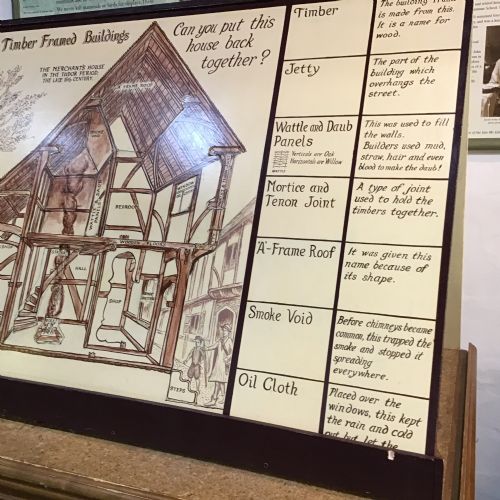 Timber Framed Buildings
THE MERCHANT'S HOUSE
IN THE TUDOR PERIOD,
THE LATE 16th CENTURY.
Can you put this
house back
together?
A FRAME ROOF
SMOKE
BEDROOM
WINDOW
HALL
SHOP
STEPS
Timber
The building frame
is made from this.
It is a name for
wood.
Jetty
The part of the
building which
overhangs the
street.
Wattle and Daub
Panels
Verticals are Oak
Horizontals are Willow
WATTLE
This was used to fill
the walls.
Builders used mud,
straw, hair and even
blood to make the daub!
Mortice and
Tenon Joint
A type of joint
used to hold the
timbers together.
'A'-Frame Roof
It was given this
name because of
its shape.
Smoke Void
Before chimneys became
common, this trapped the
smoke and stopped it
spreading
everywhere.
Oil Cloth
Placed over the
windows, this kept
the rain and cold
out but let the